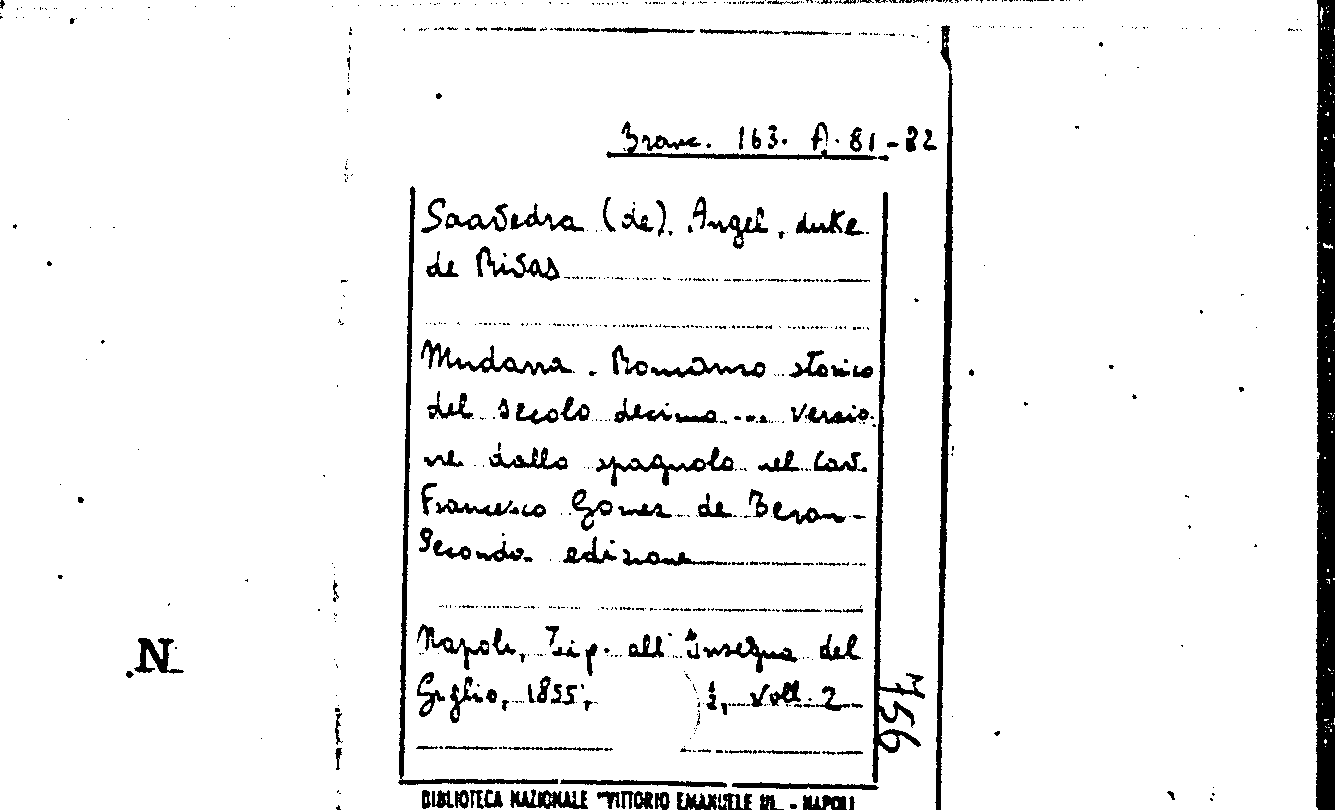 Branc. 163. A. 81-82
Saavedra (de), Angel, duke
de Rivas
Mudarra. Romanzo storico
del secolo decimo... versio-
ne dallo spagnolo nel Cav.
Francesco Gomez de Teran-
Seconda edizione
Napoli, Tip. all'Insegna del
Giglio, 1855, voll. 2
756
N
BIBLIOTECA NAZIONALE "VITTORIO EMANUELE III. - NAPOLI